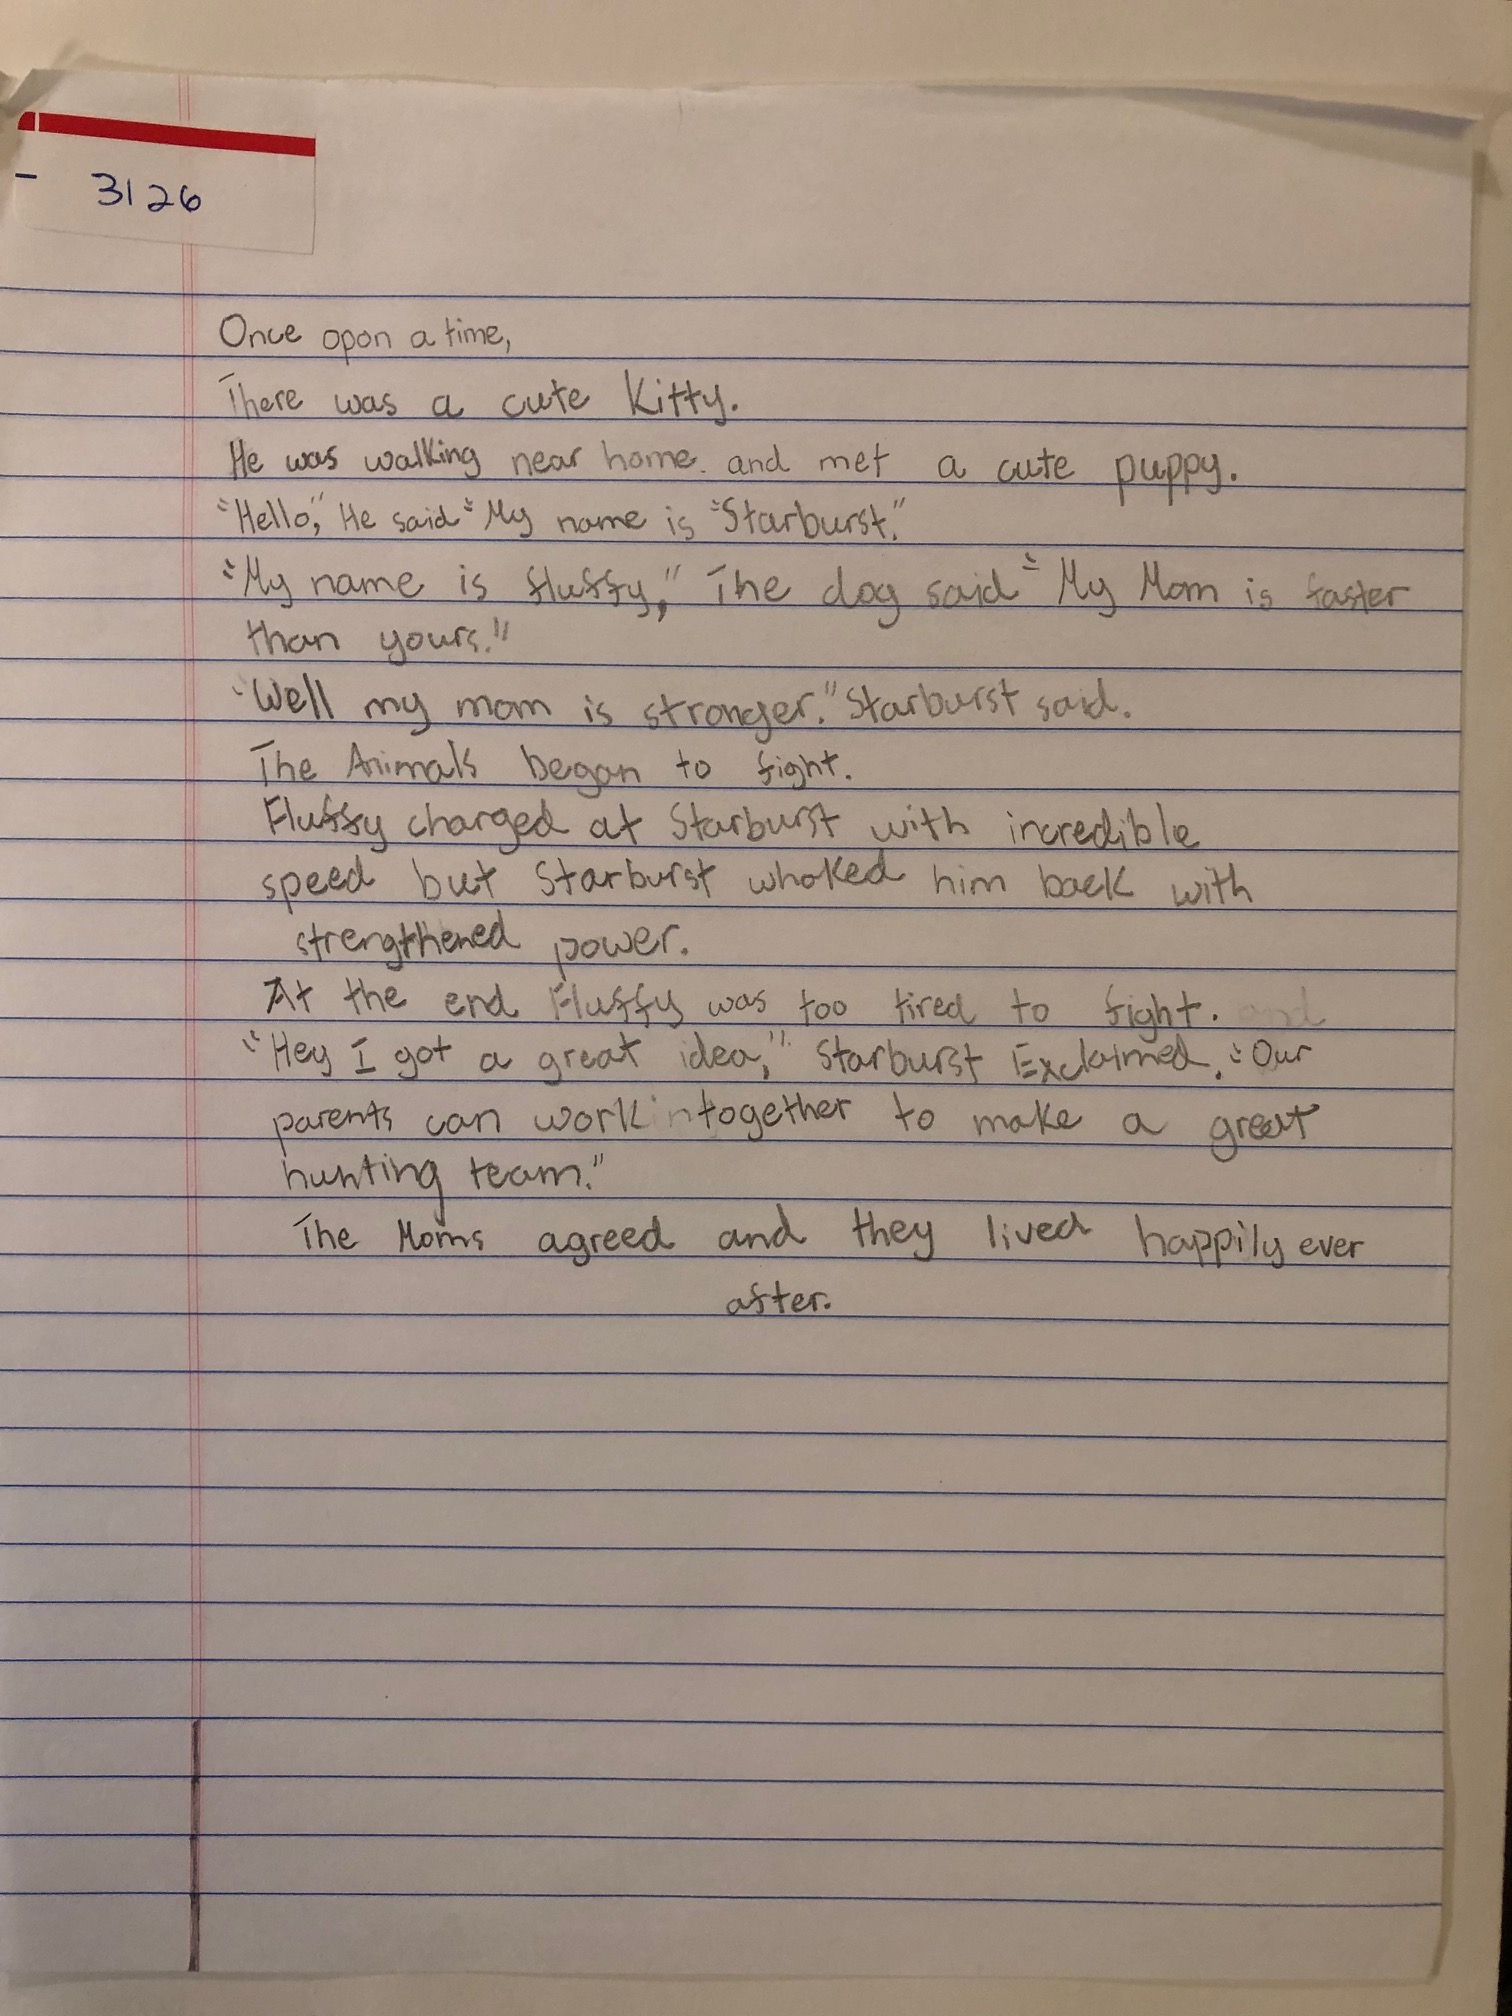 - 3126
Once opon a time,
There was a cute Kitty.
He was walking near home. and met a cute puppy.
"Hello," He said "My name is "Starburst."
"My name is fluffy," The dog said "My Mom is faster
than yours."
"Well my mom is stronger." Starburst said.
The Animals began to fight.
Fluffy charged at Starburst with incredible
speed but Starburst whaked him back with
strengthened power.
At the end Fluffy was too tired to fight. and
"Hey I got a great idea," Starburst Exclaimed. "Our
parents can work together to make a great
hunting team."
The Moms agreed and they lived happily ever
after.